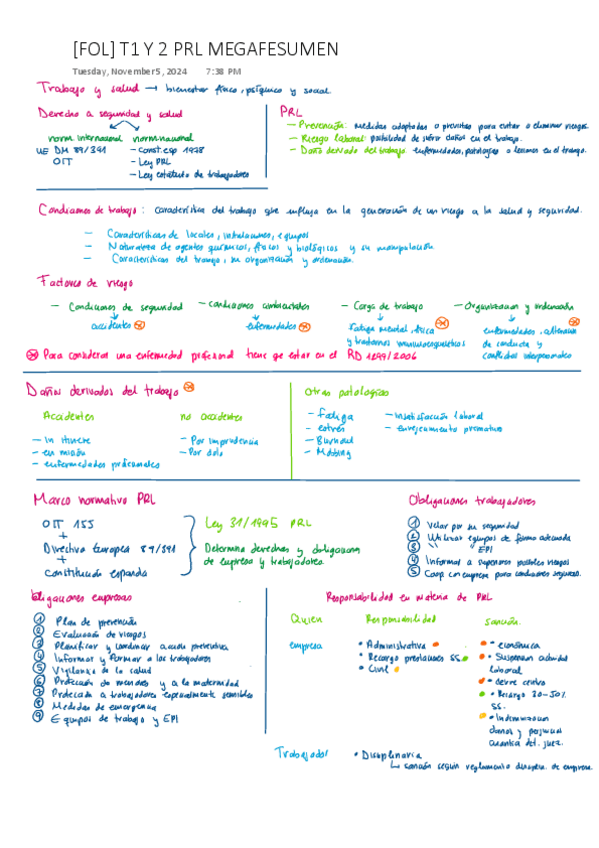 [FOL] T1 Y 2 PRL MEGAFESUMEN
Tuesday, November 5, 2024 7:38 PM
Trabajo y salud → bienestar físico, psíquico y social
Derecho a seguridad y salud
norm. internacional norm. nacional
UE DM 89/391 - Const. esp 1978
OIT - Ley PRL
- Ley estatuto de trabajadores
PRL
- Prevención: medidas adoptadas o previstas para evitar o eliminar riesgos.
- Riesgo laboral: posibilidad de sufrir daños en el trabajo.
- Daño derivado del trabajo: enfermedades, patologías o lesiones en el trabajo.
Condiciones de trabajo: característica del trabajo que influya en la generación de un riesgo a la salud y seguridad.
- Características de locales, instalaciones, equipos
- Naturaleza de agentes químicos, físicos y biológicos y su manipulación.
- Características del trabajo, su organización y ordenación.
Factores de riesgo
- Condiciones de seguridad - condiciones ambientales - Carga de trabajo - Organización y ordenación
accidentes enfermedades fatiga mental, física enfermedades, alteración
y trastornos musculoesqueléticos de conducta y
conflictos interpersonales
Para considerar una enfermedad profesional tiene que estar en el RD 1299/2006
Daños derivados del trabajo
Accidentes no accidentes
- In itinere - Por imprudencia
- en misión - Por dolo
- enfermedades profesionales
Otras patologías
- Fatiga - Insatisfacción laboral
- estrés - envejecimiento prematuro
- Burnout
- Mobbing
Marco normativo PRL
OIT 155
+
Directiva Europea 89/391
+
Constitución española
Ley 31/1995 PRL
Determina derechos y obligaciones
de empresa y trabajadores.
Obligaciones trabajadores
1 Velar por su seguridad
2 Utilizar equipos de forma adecuada
3 \\ EPI
4 Informar a superiores posibles riesgos
5 Coop. con empresa para condiciones seguras.
bligaciones empresas
1 Plan de prevención
2 Evaluación de riesgos
3 Planificar y coordinar acción preventiva
4 Informar y formar a los trabajadores
5 Vigilancia de la salud
6 Protección de menores y a la maternidad
7 Protección a trabajadores especialmente sensibles
8 Medidas de emergencia
9 Equipos de trabajo y EPI
Responsabilidad en materia de PRL
Quien Responsabilidad sanción
empresa • Administrativa • económica
• Recargo prestaciones SS • Suspensión actividad
• Civil laboral
• cierre centro
• Recargo 30-50%
SS.
• Indemnización
daños y perjuicios
cuantía det. juez.
Trabajador • Disciplinaria
↳ sanción según reglamento disciplin. de empresa.